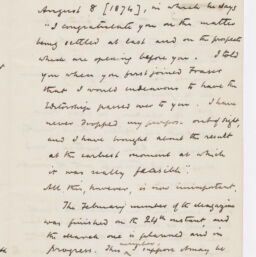 August 8 [1874], in which he says
"I congratulate you on the matter
being settled at last and on the prospects
which are opening before you. I told
you when you first joined Fraser
that I would endeavour to have the
Editorship passed over to you. I have
never dropped my purpose out of sight,
and I have brought about the result
at the earliest moment at which
it was really feasible".
All this, however, is now unimportant.
The February number of the Magazine
was finished on the 24th instant, and
the March one is planned and in
progress. This I suppose may be